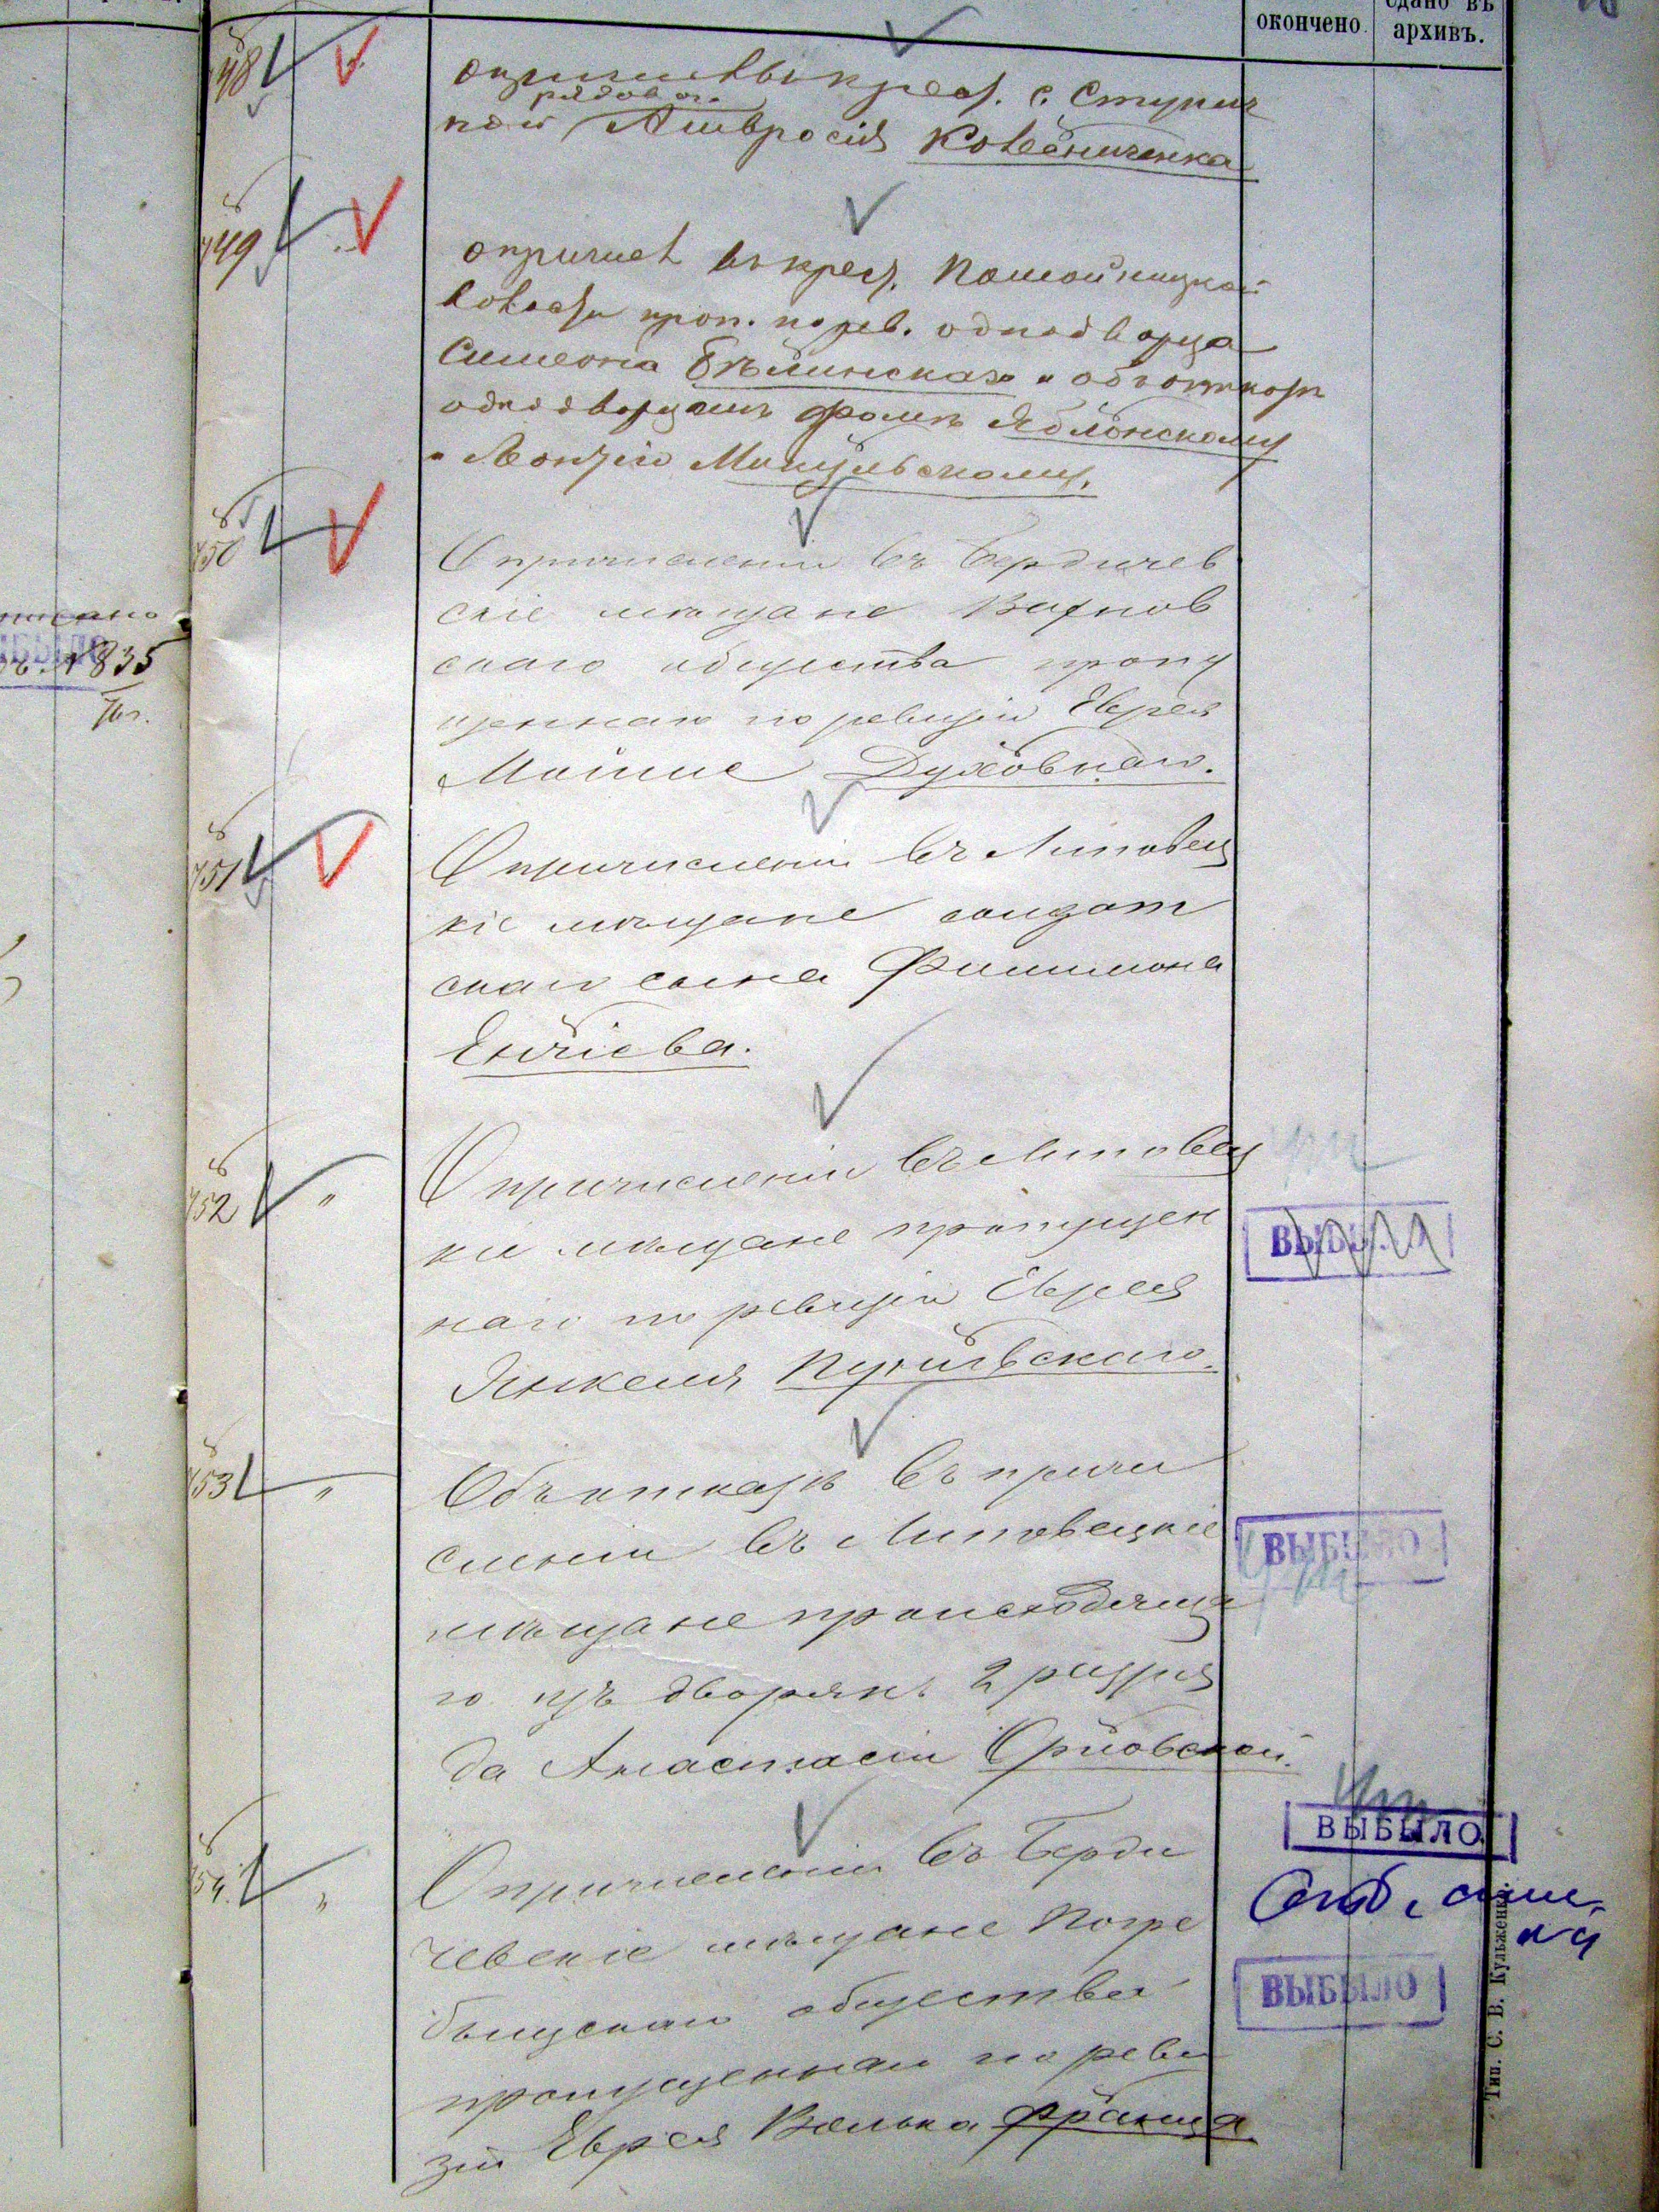 окончено.
сдано въ
архивъ.
748
о причисл. въ крест. с. Ступич
ной рядоваго Амвросія Ковбениченка
749
о причисл въ крест. Помойницкой
волости проп. по рев. однодворца
Симеона Бѣлинскаго и объ отказѣ
однодворцамъ Фомѣ Яблонскому
и Леонтію Микульскому.
750
О причисленіи въ Бердичев
скіе мѣщане Вахнов
скаго общества пропу
щеннаго по ревизіи Еврея
Мошка Духовнаго.
751
О причисленіи въ Липовец
кіе мѣщане солдат
скаго сына Филимона
752
О причисленіи въ Липовец
кіе мѣщане пропущен
наго по ревизіи Еврея
Янкеля
ВЫБЫЛО
753
Объ отказѣ въ причи
сленіи въ Липовецкіе
мѣщане происходяща
го изъ дворянъ 2 разря
да Анастасіи Орловской.
ВЫБЫЛО
754
О причисленіи въ Берди
чевскіе мѣщане Погре
бищскаго общества
пропущеннаго по реви
зіи Еврея Волька Франца
ВЫБЫЛО
ВЫБЫЛО
835
Тип. С. В. Кульженко.